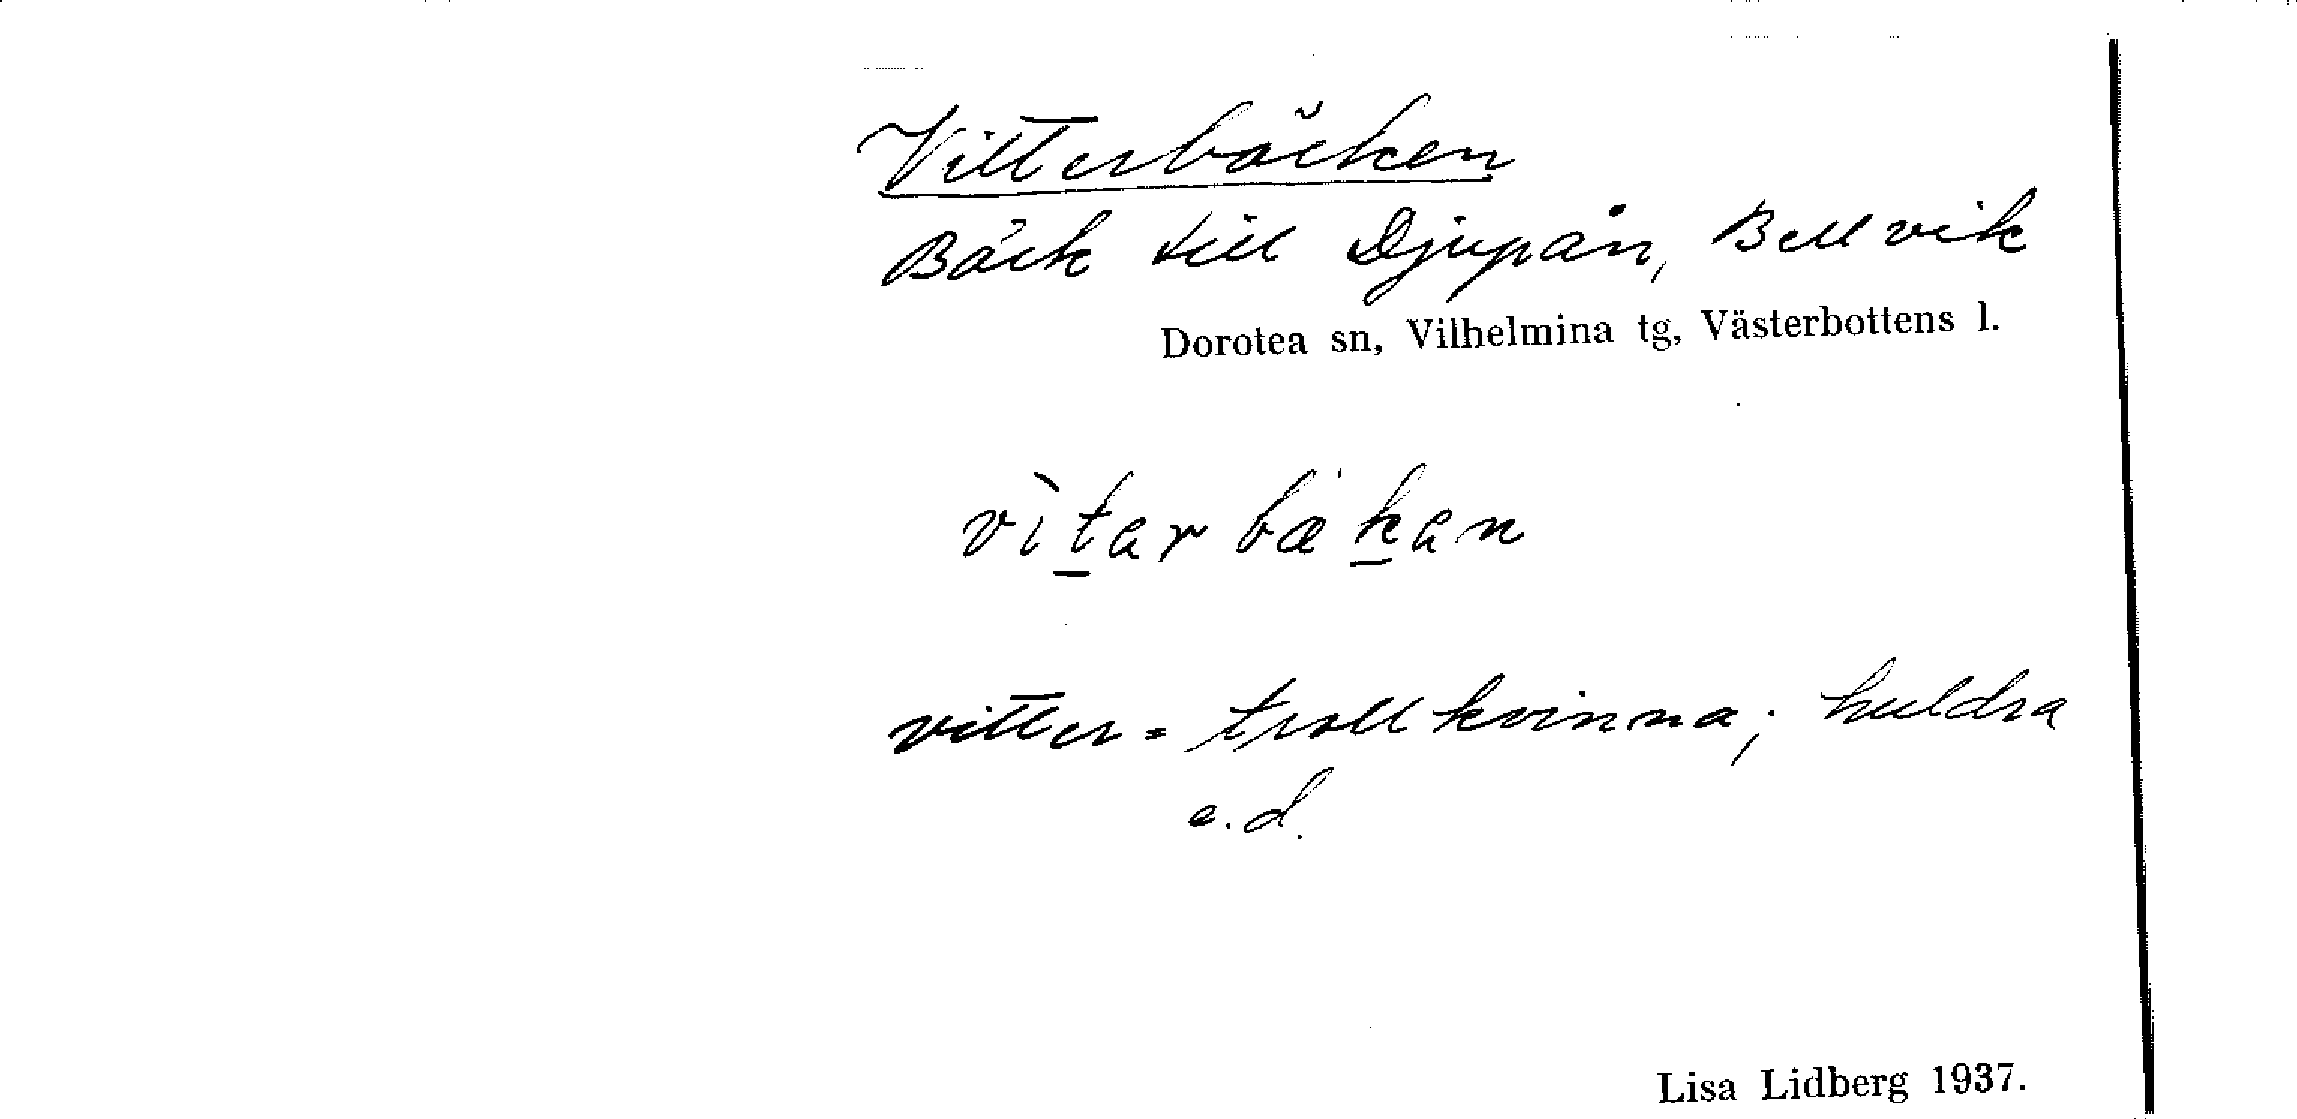 Vitterbäcken
Bäck till Djupån, Bellvik
Dorotea sn, Vilhelmina tg, Västerbottens l.
vìtar bækan
vitter = trollkvinna; huldra
e.d.
Lisa Lidberg 1937.